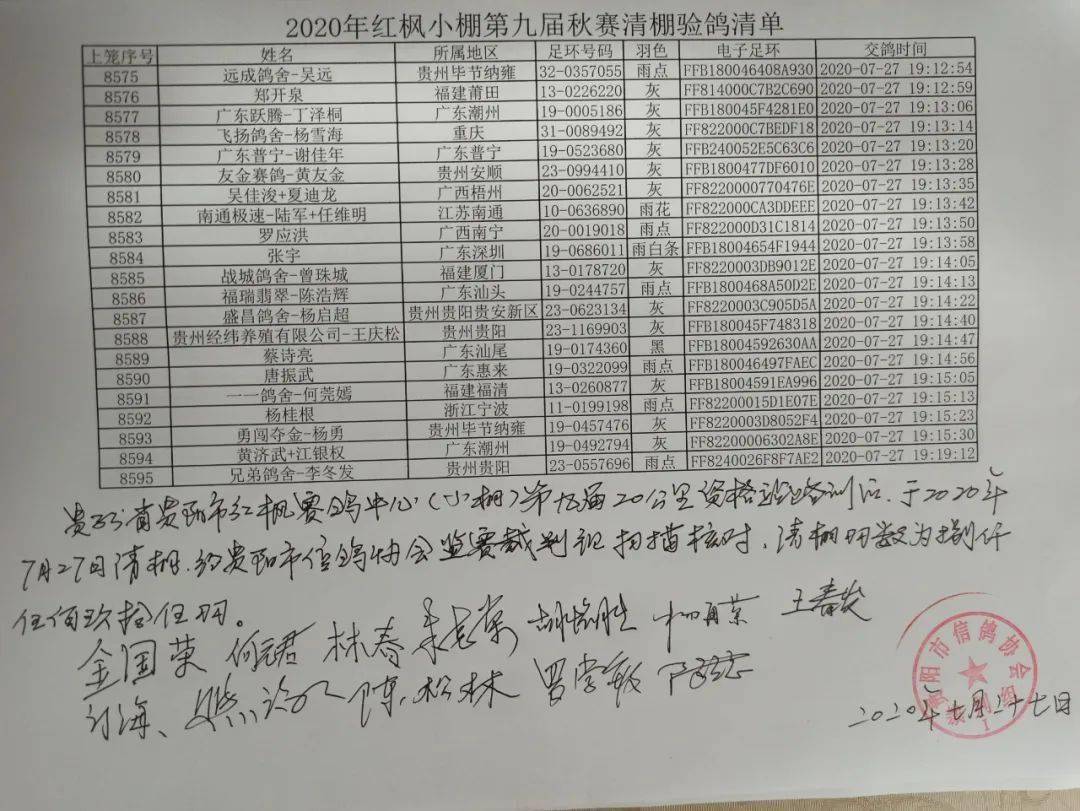 2020年红枫小棚第九届秋赛清棚验鸽清单
上笼序号 姓名 所属地区 足环号码 羽色 电子足环 交鸽时间
8575 远成鸽舍-吴远 贵州毕节纳雍 32-0357055 雨点 FFB180046408A930 2020-07-27 19:12:54
8576 郑开泉 福建莆田 13-0226220 灰 FF814000C7B2C690 2020-07-27 19:12:59
8577 广东跃腾-丁泽桐 广东潮州 19-0005186 灰 FFB180045F4281E0 2020-07-27 19:13:06
8578 飞扬鸽舍-杨雪海 重庆 31-0089492 灰 FF822000C7BEDF18 2020-07-27 19:13:14
8579 广东普宁-谢佳年 广东普宁 19-0523680 灰 FFB240052E5C63C6 2020-07-27 19:13:20
8580 友金赛鸽-黄友金 贵州安顺 23-0994410 灰 FFB1800477DF6010 2020-07-27 19:13:28
8581 吴佳浚+夏迪龙 广西梧州 20-0062521 灰 FF8220000770476E 2020-07-27 19:13:35
8582 南通极速-陆军+任维明 江苏南通 10-0636890 雨花 FF822000CA3DDEEE 2020-07-27 19:13:42
8583 罗应洪 广西南宁 20-0019018 雨点 FF822000D31C1814 2020-07-27 19:13:50
8584 张宇 广东深圳 19-0686011 雨白条 FFB18004654F1944 2020-07-27 19:13:58
8585 战城鸽舍-曾珠城 福建厦门 13-0178720 灰 FF8220003DB9012E 2020-07-27 19:14:05
8586 福瑞翡翠-陈浩辉 广东汕头 19-0244757 雨点 FFB1800468A50D2E 2020-07-27 19:14:13
8587 盛昌鸽舍-杨启超 贵州贵阳贵安新区 23-0623134 灰 FF8220003C905D5A 2020-07-27 19:14:22
8588 贵州经纬养殖有限公司-王庆松 贵州贵阳 23-1169903 灰 FFB180045F748318 2020-07-27 19:14:40
8589 蔡诗亮 广东汕尾 19-0174360 黑 FFB18004592630AA 2020-07-27 19:14:47
8590 唐振武 广东惠来 19-0322099 雨点 FFB180046497FAEC 2020-07-27 19:14:56
8591 一一鸽舍-何莞嫣 福建福清 13-0260877 灰 FFB18004591EA996 2020-07-27 19:15:05
8592 杨桂根 浙江宁波 11-0199198 雨点 FF82200015D1E07E 2020-07-27 19:15:13
8593 勇闯夺金-杨勇 贵州毕节纳雍 19-0457476 灰 FF8220003D8052F4 2020-07-27 19:15:23
8594 黄济武+江银权 广东潮州 19-0492794 灰 FF82200006302A8E 2020-07-27 19:15:30
8595 兄弟鸽舍-李冬发 贵州贵阳 23-0557696 雨点 FF8240026F8F7AE2 2020-07-27 19:19:12
贵州省贵阳市红枫赛鸽中心(小棚)第九届20公里资格站训后,于2020年
7月27日清棚.经贵阳市信鸽协会监赛裁判组扫描核对,清棚羽数为捌仟
伍佰玖拾伍羽。
金国荣 何冠君 林春 胡长胜 王春发
陈松林 罗学敏
贵阳市信鸽协会
裁判组
1
2020年七月二十七日